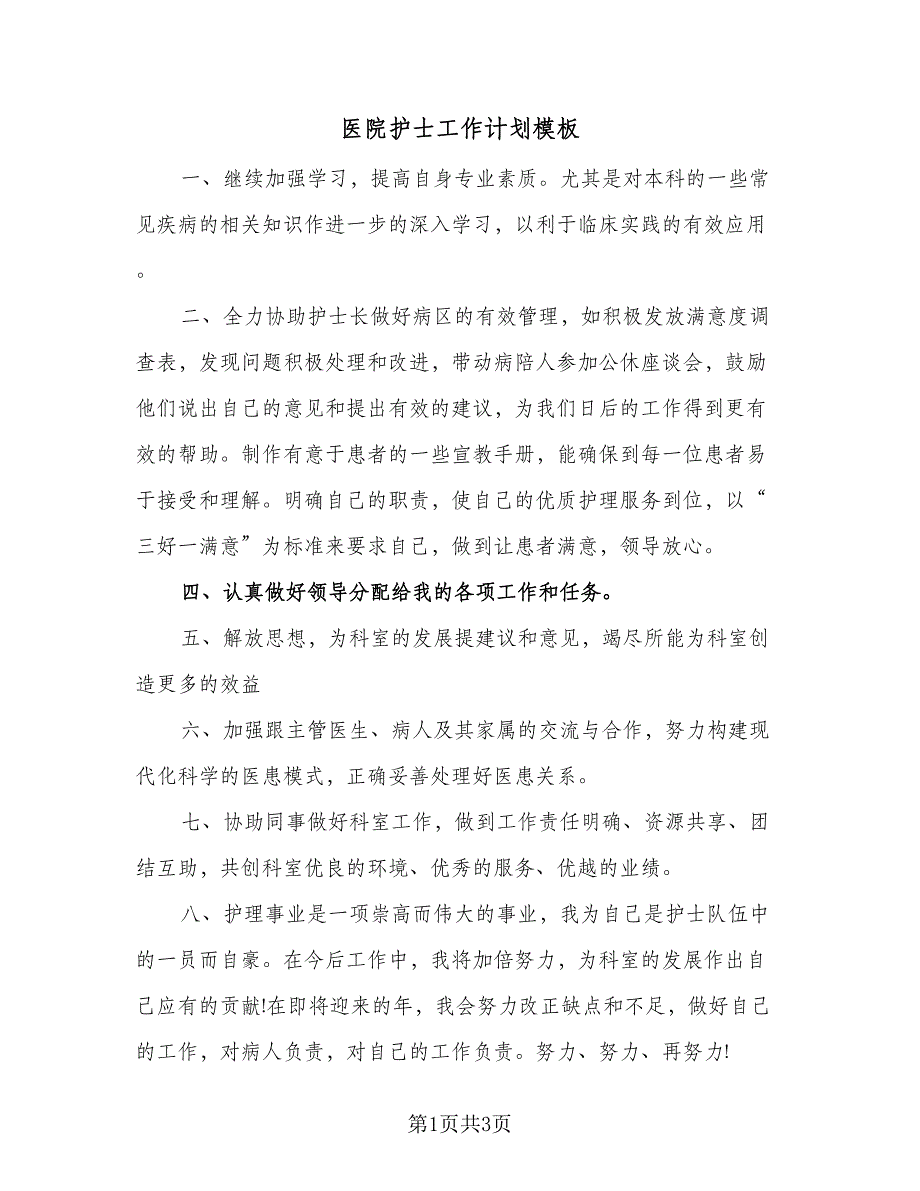 医院护士工作计划模板
一、继续加强学习，提高自身专业素质。尤其是对本科的一些常
见疾病的相关知识作进一步的深入学习，以利于临床实践的有效应用
。
二、全力协助护士长做好病区的有效管理，如积极发放满意度调
查表，发现问题积极处理和改进，带动病陪人参加公休座谈会，鼓励
他们说出自己的意见和提出有效的建议，为我们日后的工作得到更有
效的帮助。制作有意于患者的一些宣教手册，能确保到每一位患者易
于接受和理解。明确自己的职责，使自己的优质护理服务到位，以“
三好一满意”为标准来要求自己，做到让患者满意，领导放心。
四、认真做好领导分配给我的各项工作和任务。
五、解放思想，为科室的发展提建议和意见，竭尽所能为科室创
造更多的效益
六、加强跟主管医生、病人及其家属的交流与合作，努力构建现
代化科学的医患模式，正确妥善处理好医患关系。
七、协助同事做好科室工作，做到工作责任明确、资源共享、团
结互助，共创科室优良的环境、优秀的服务、优越的业绩。
八、护理事业是一项崇高而伟大的事业，我为自己是护士队伍中
的一员而自豪。在今后工作中，我将加倍努力，为科室的发展作出自
己应有的贡献!在即将迎来的年，我会努力改正缺点和不足，做好自己
的工作，对病人负责，对自己的工作负责。努力、努力、再努力!
第1页共3页